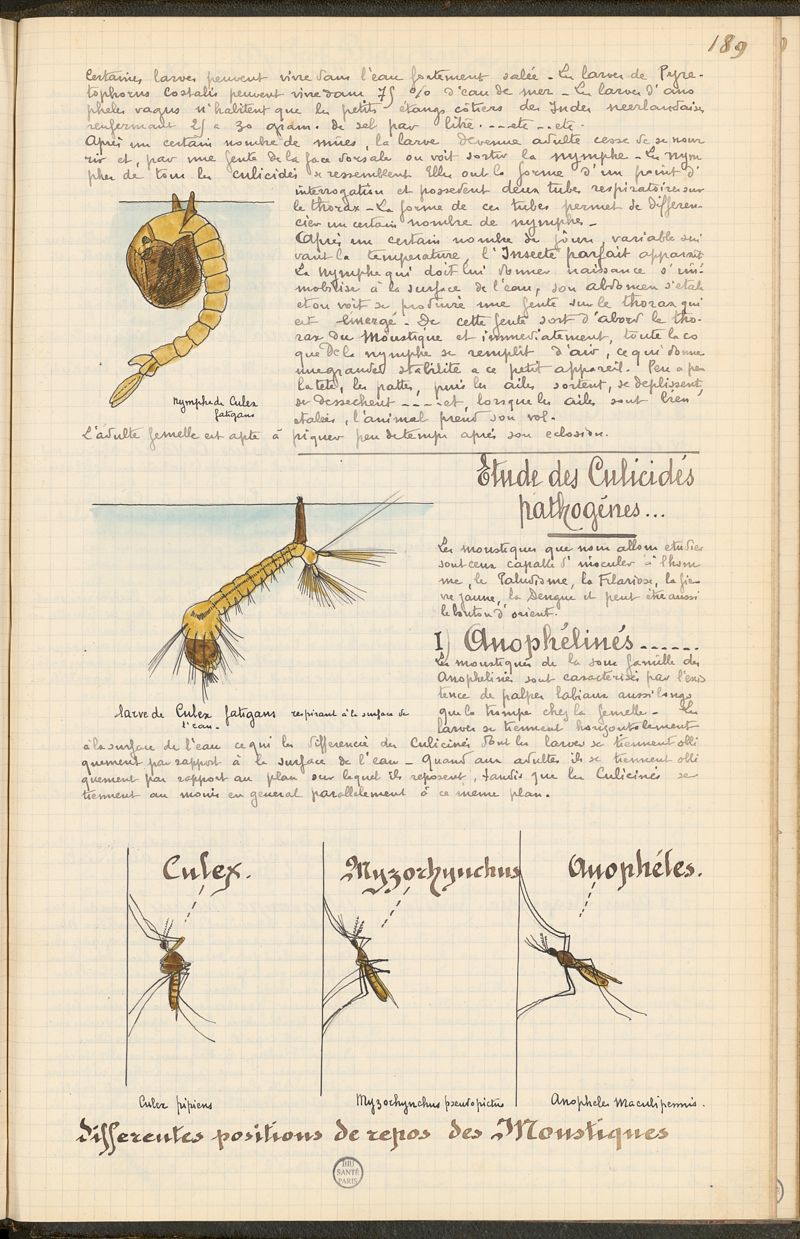 189
Certaines larves peuvent vivre dans l'eau fortement salée - Les larves de Pyre-
tophorus Costalis peuvent vivre dans 75 % d'eau de mer - Les larves d'ano
pheles vagus n'habitent que les petits étangs côtiers des Indes neerlandaises
renfermant 25 a 30 gram. de sel par litre. - - - etc - - etc -
Après un certain nombre de mues, la larve devenue adulte cesse de se nour
rir et, par une fente de la face dorsale on voit sortir la nymphe - Les nym
phes de tous les Culicidés se ressemblent Elles ont la forme d'un point d'
interrogation et possedent deux tubes respiratoires sur
le thorax - La forme de ces tubes permet de differen-
cier un certain nombre de nymphes -
Après un certain nombre de jours, variable sui
vant la temperature, l'Insecte parfait apparait
La nymphe qui doit lui donner naissance s'im-
mobilise à la surface de l'eau, son abdomen s'etale
et on voit se produire une fente sur le thorax qui
est émergé - De cette fente sort d'abord le tho-
rax du Moustique et immediatement, toute la co
que de la nymphe se remplit d'air, ce qui donne
une grande stabilité a ce petit appareil. Peu a peu
la tete, les pattes, puis les ailes sortent, se deplissent,
se dessechent - - - - et, lorsque les ailes sont bien
etalées, l'animal prend son vol -
nymphe de Culex
fatigans
L'adulte femelle est apte à piquer peu de temps après son eclosion.
Etude des Culicidés
pathogénes...
Les moustiques que nous allons etudier
sont ceux capables d'inoculer à l'hom
me, le Paludisme, la Filariose, la fie-
vre jaune, la Dengue et peut être aussi
le bouton d'orient.
I) Anophélinés......
Les moustiques de la sous famille des
Anophelinés sont caractérisés par l'exis
tence de palpes labiaux aussi longs
que la trompe chez la femelle - Les
larves se tiennent horizontalement
larve de Culex fatigans respirant à la surface de
l'eau -
à la surface de l'eau ce qui les différencie des Culicinés dont les larves se tiennent obli
quement par rapport à la surface de l'eau - Quand aux adultes ils se tiennent obli
quement par rapport au plan sur lequel ils reposent, tandis que les Culicinés se
tiennent au moins en general parallelement à ce meme plan.
Culex.
Myzorhynchus
Anophéles.
Culex pipiens
Myzorhynchus pseudopictus
Anopheles Maculipennis.
differentes positions de repos des Moustiques
BIU
SANTÉ
PARIS